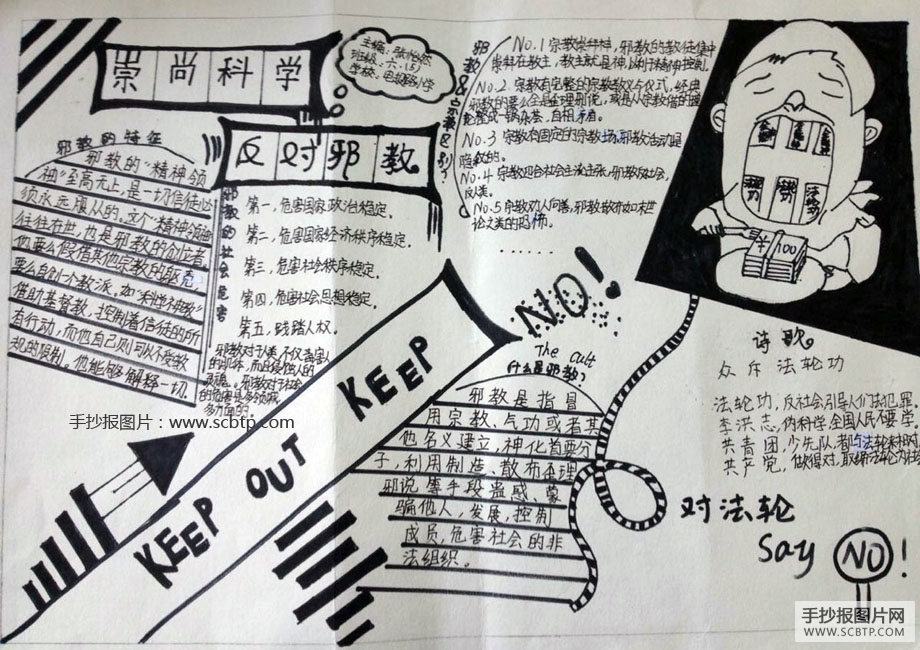 崇尚科学
反对邪教
主编：张怡然
班级：六.(5)
邪教的特征
邪教的“精神领
袖”至高无上，是一切信徒必
须永远服从的。这个“精神领袖
往往在世，也是邪教的创立者，
他要么假借其他宗教的躯壳，
要么自创个教派，如“科学神教”
借助基督教，控制着信徒的所
有行动，而他自己则可以不受教
规的限制。他能够解释一切.
邪教的社会危害
第一，危害国家政治稳定.
第二，危害国家经济秩序稳定.
第三，危害社会秩序稳定.
第四，危害社会思想稳定.
第五，践踏人权.
邪教对人类，不仅毒害人
邪教对社会
的危害是多角度、
多方面的.
邪教&宗教区别？
No.1 宗教崇拜神，邪教的教徒集中
崇拜在教主，教主就是神，以利于精神控制.
No.2 宗教有完整的宗教教义与仪式，经典
邪教的要么全是歪理邪说，或是从宗教借的理
论整成一锅杂荟，自相矛盾.
No.3 宗教有固定的宗教场，邪教活动是
隐秘的.
No.4 宗教迎合社会生活主张，邪教反社会，
反人类.
No.5 宗教劝人向善，邪教散布如末世
论之类的恐怖.
........
NO!
¥ 100
KEEP OUT KEEP
The cult
什么是邪教？
邪教是指冒
用宗教、气功或者其
他名义建立，神化首要分
子，利用制造、散布歪理
邪说等手段蛊惑、蒙
骗他人，发展，控制
成员，危害社会的非
法组织.
诗歌
众斥法轮功
法轮功，反社会，引导人们去犯罪.
李洪志，伪科学，全国人民不要学.
共青团，少先队，都与法轮来作对.
共产党，做得对，取缔法轮为社会
对法轮
Say NO!
手抄报图片：www.scbtp.com
手抄报图片网
WWW.SCBTP.COM